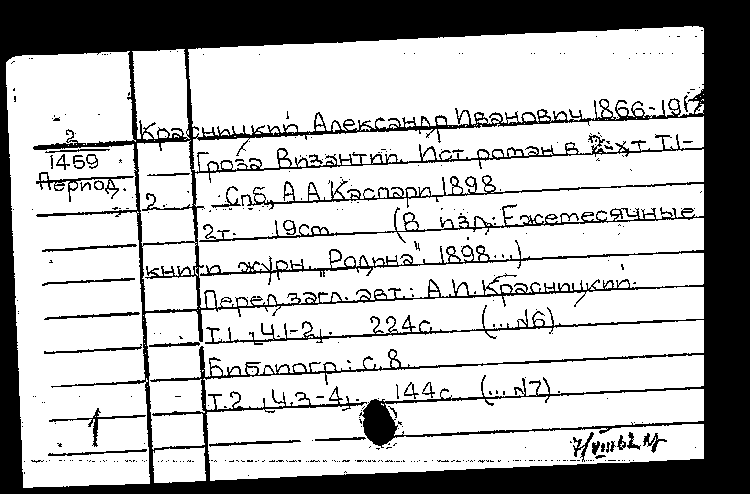 2
1469
Период.
Красницкий, Александр Иванович, 1866-1917
Гроза Византии. Ист. роман в 2-хт. Т.1-
2. Спб, А.А.Каспари, 1898.
2т. 19см. (В изд.: Ежемесячные
книги журн. „Родина". 1898...)
Перед загл. авт.: А.И. Красницкий.
Т.1. [Ч.1-2]. 224с. (...№6).
Библиогр.: с.8.
Т.2. [Ч.3-4]. 144с. (...№7).
7/VIII 62